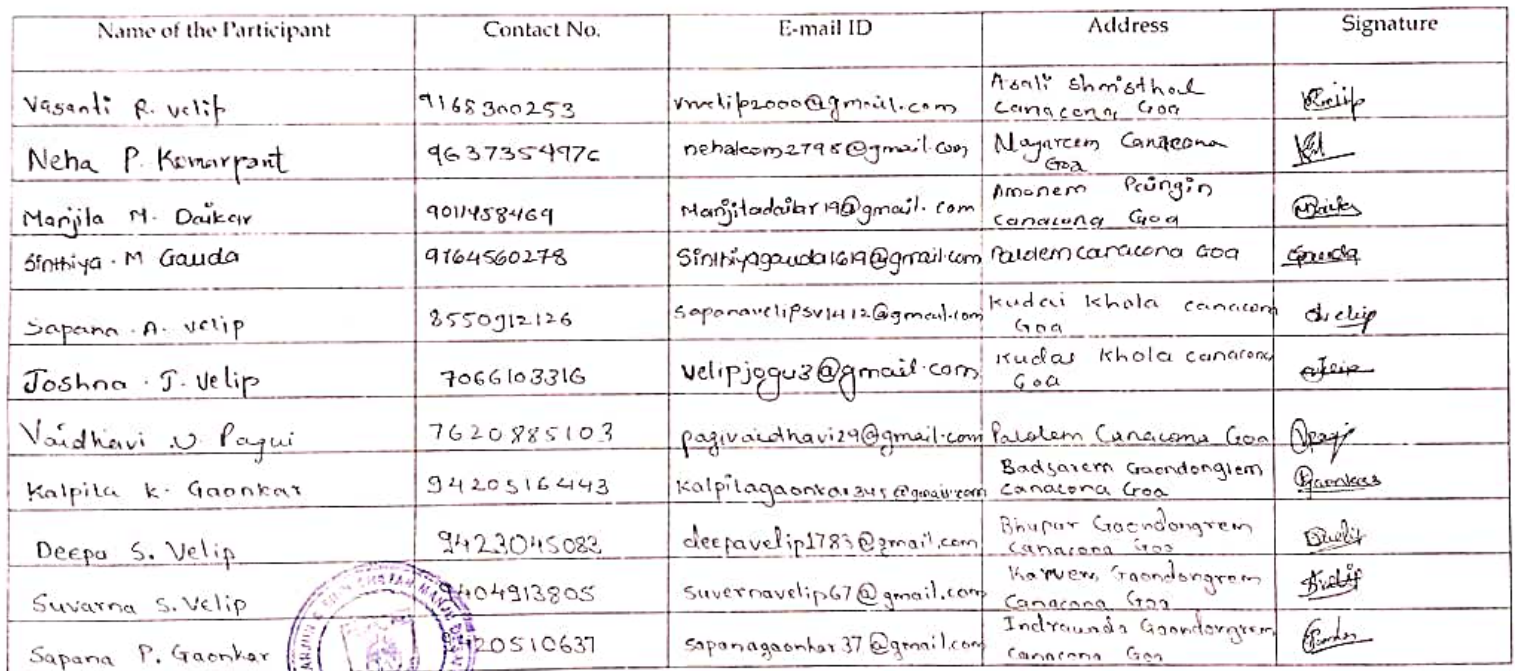 Name of the Participant Contact No. E-mail ID Address Signature
Vasanti R. Velip 9168300253 vrvelip2000@gmail.com Asali Shristhal
Canacona Goa
Neha P. Komarpant 9637354976 nehakom2798@gmail.com Nagarcem Canacona
Goa
Manjita M. Daikar 9011458469 Manjitadaikar19@gmail.com Amonem Paingin
Canacona Goa
Sinthiya . M Gauda 9764560278 Sinthiyagauda1619@gmail.com Palolem canacona Goa Gauda
Sapana . A. velip 8550912126 sapanavelipsv1412@gmail.com Kudai Khola canacona
Goa
Joshna . J. Velip 7066103316 velipjogu3@gmail.com Kudai Khola canacona
Goa
Vaidhavi .V. Pagui 7620885103 pagivaidhavi29@gmail.com Palolem Canacona Goa
Kalpita K. Gaonkar 9420516443 Kalpitagaonkar345@gmail.com Badsarem Gaondongrem
Canacona Goa Gaonkar
Deepa S. Velip 9423045082 deepavelip1783@gmail.com Bhupar Gaondongrem
Canacona Goa
Suvarna S. Velip 9404913805 suvernavelip67@gmail.com Karvem, Gaondongrem
Canacona Goa
Sapana P. Gaonkar 20510637 sapanagaonkar37@gmail.com Gaondongrem
Canacona Goa